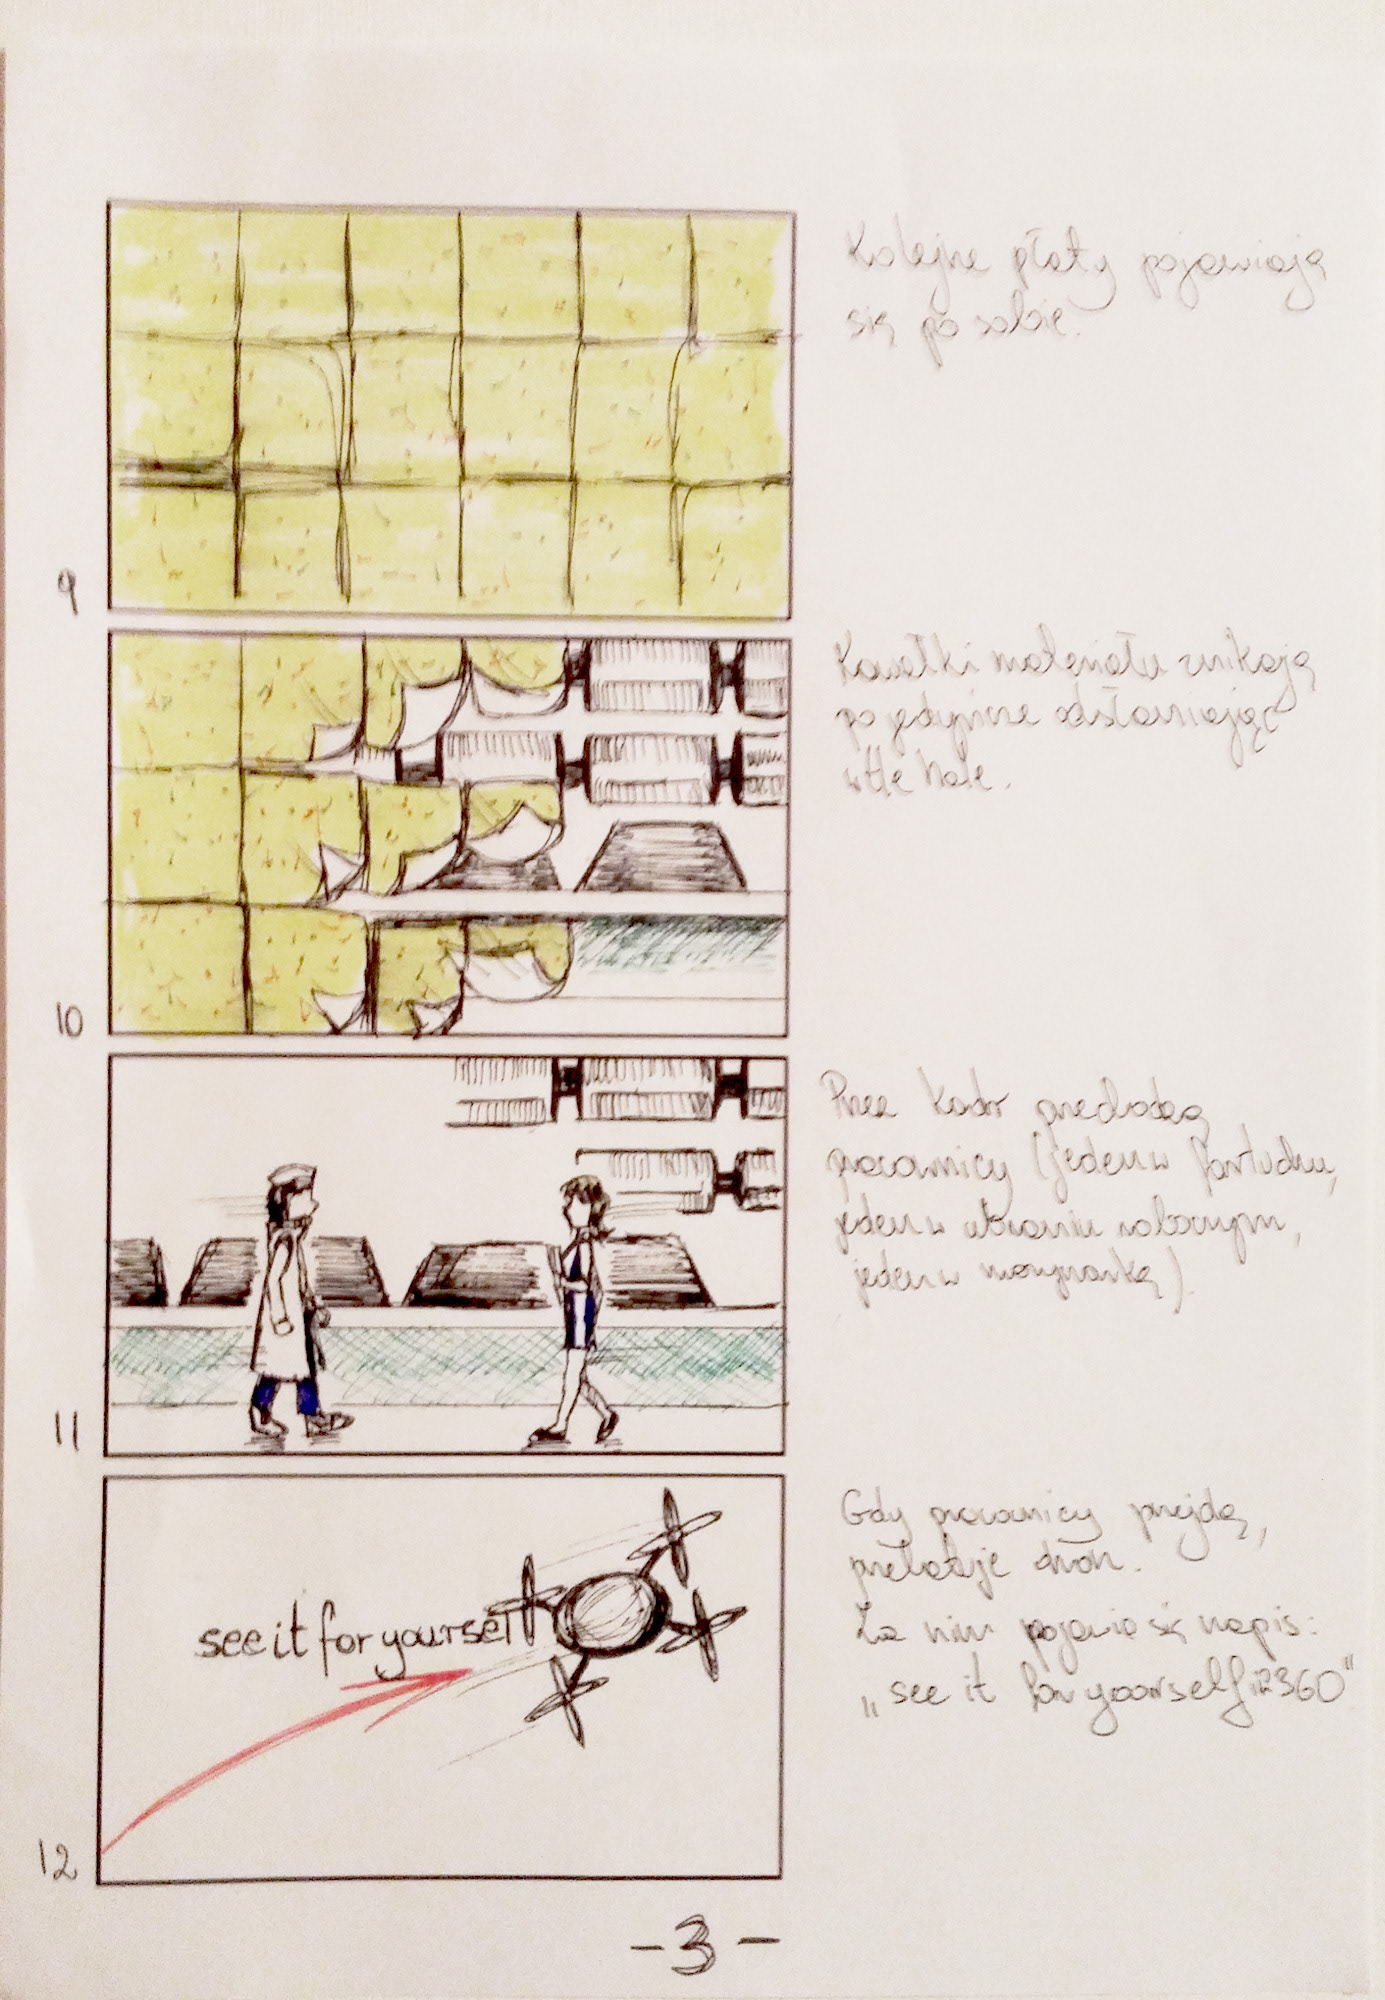 9
Kolejne płaty pojawiają
się po sobie.
10
Kawałki materiału znikają
pojedynczo odsłaniając
w tle halę.
11
Przez kadr przechodzą
pracownicy (jeden w fartuchu,
jeden w ubraniu roboczym,
jeden w marynarką)
12
see it for yourself
Gdy pracownicy przejdą,
przelatuje dron.
Za nim pojawia się napis:
„see it for yourself 360"
-3-